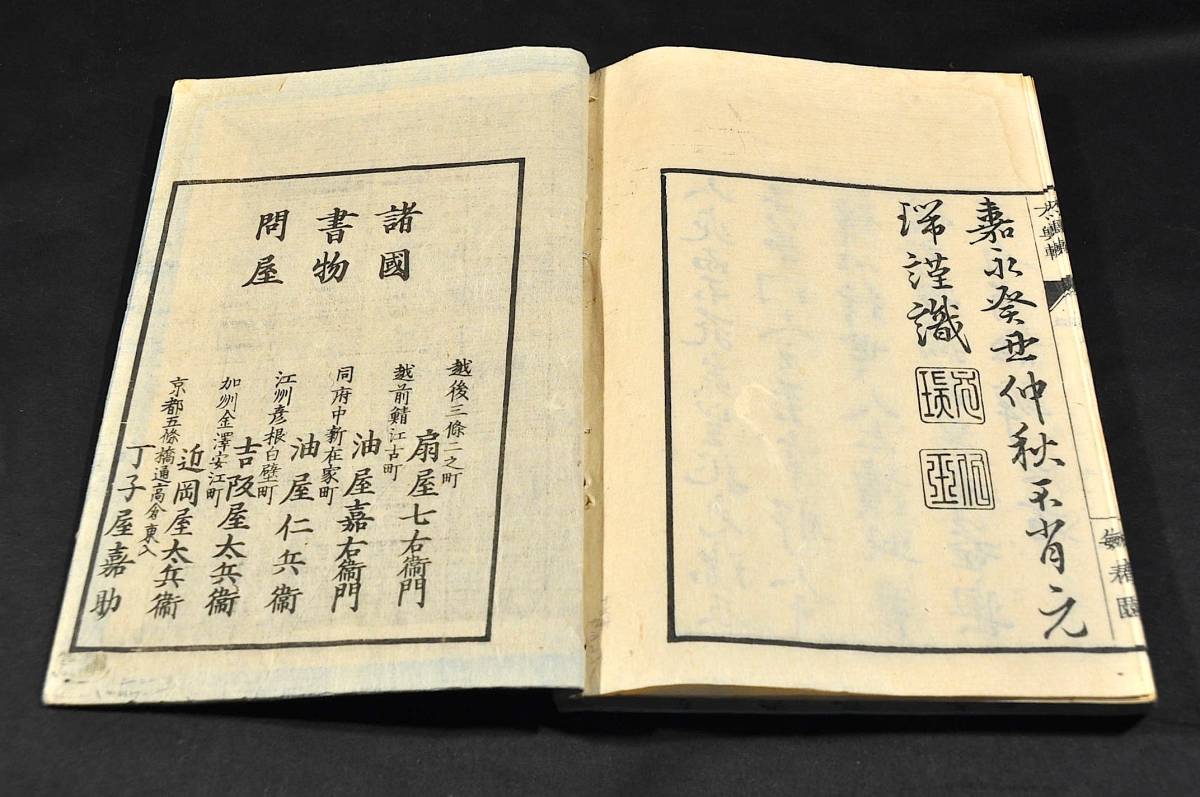 嘉永癸丑仲秋不肖元
瑞謹識
諸國
書物
問屋
越後三條二之町
扇屋七右衞門
越前鯖江古町
油屋嘉右衞門
同府中新在家町
油屋仁兵衞
江州彦根白壁町
吉阪屋太兵衞
加州金澤安江町
近岡屋太兵衞
京都五條橋通高倉東入
丁子屋嘉助